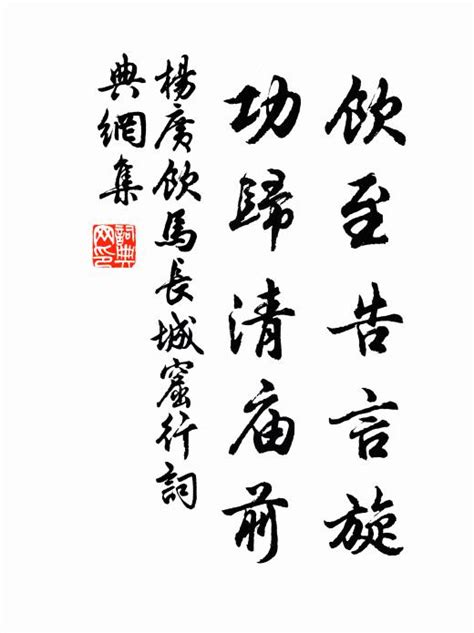 飲至告言旋
功歸清庙前
楊廣飲馬長城窟行詞
典網集
詞典网印